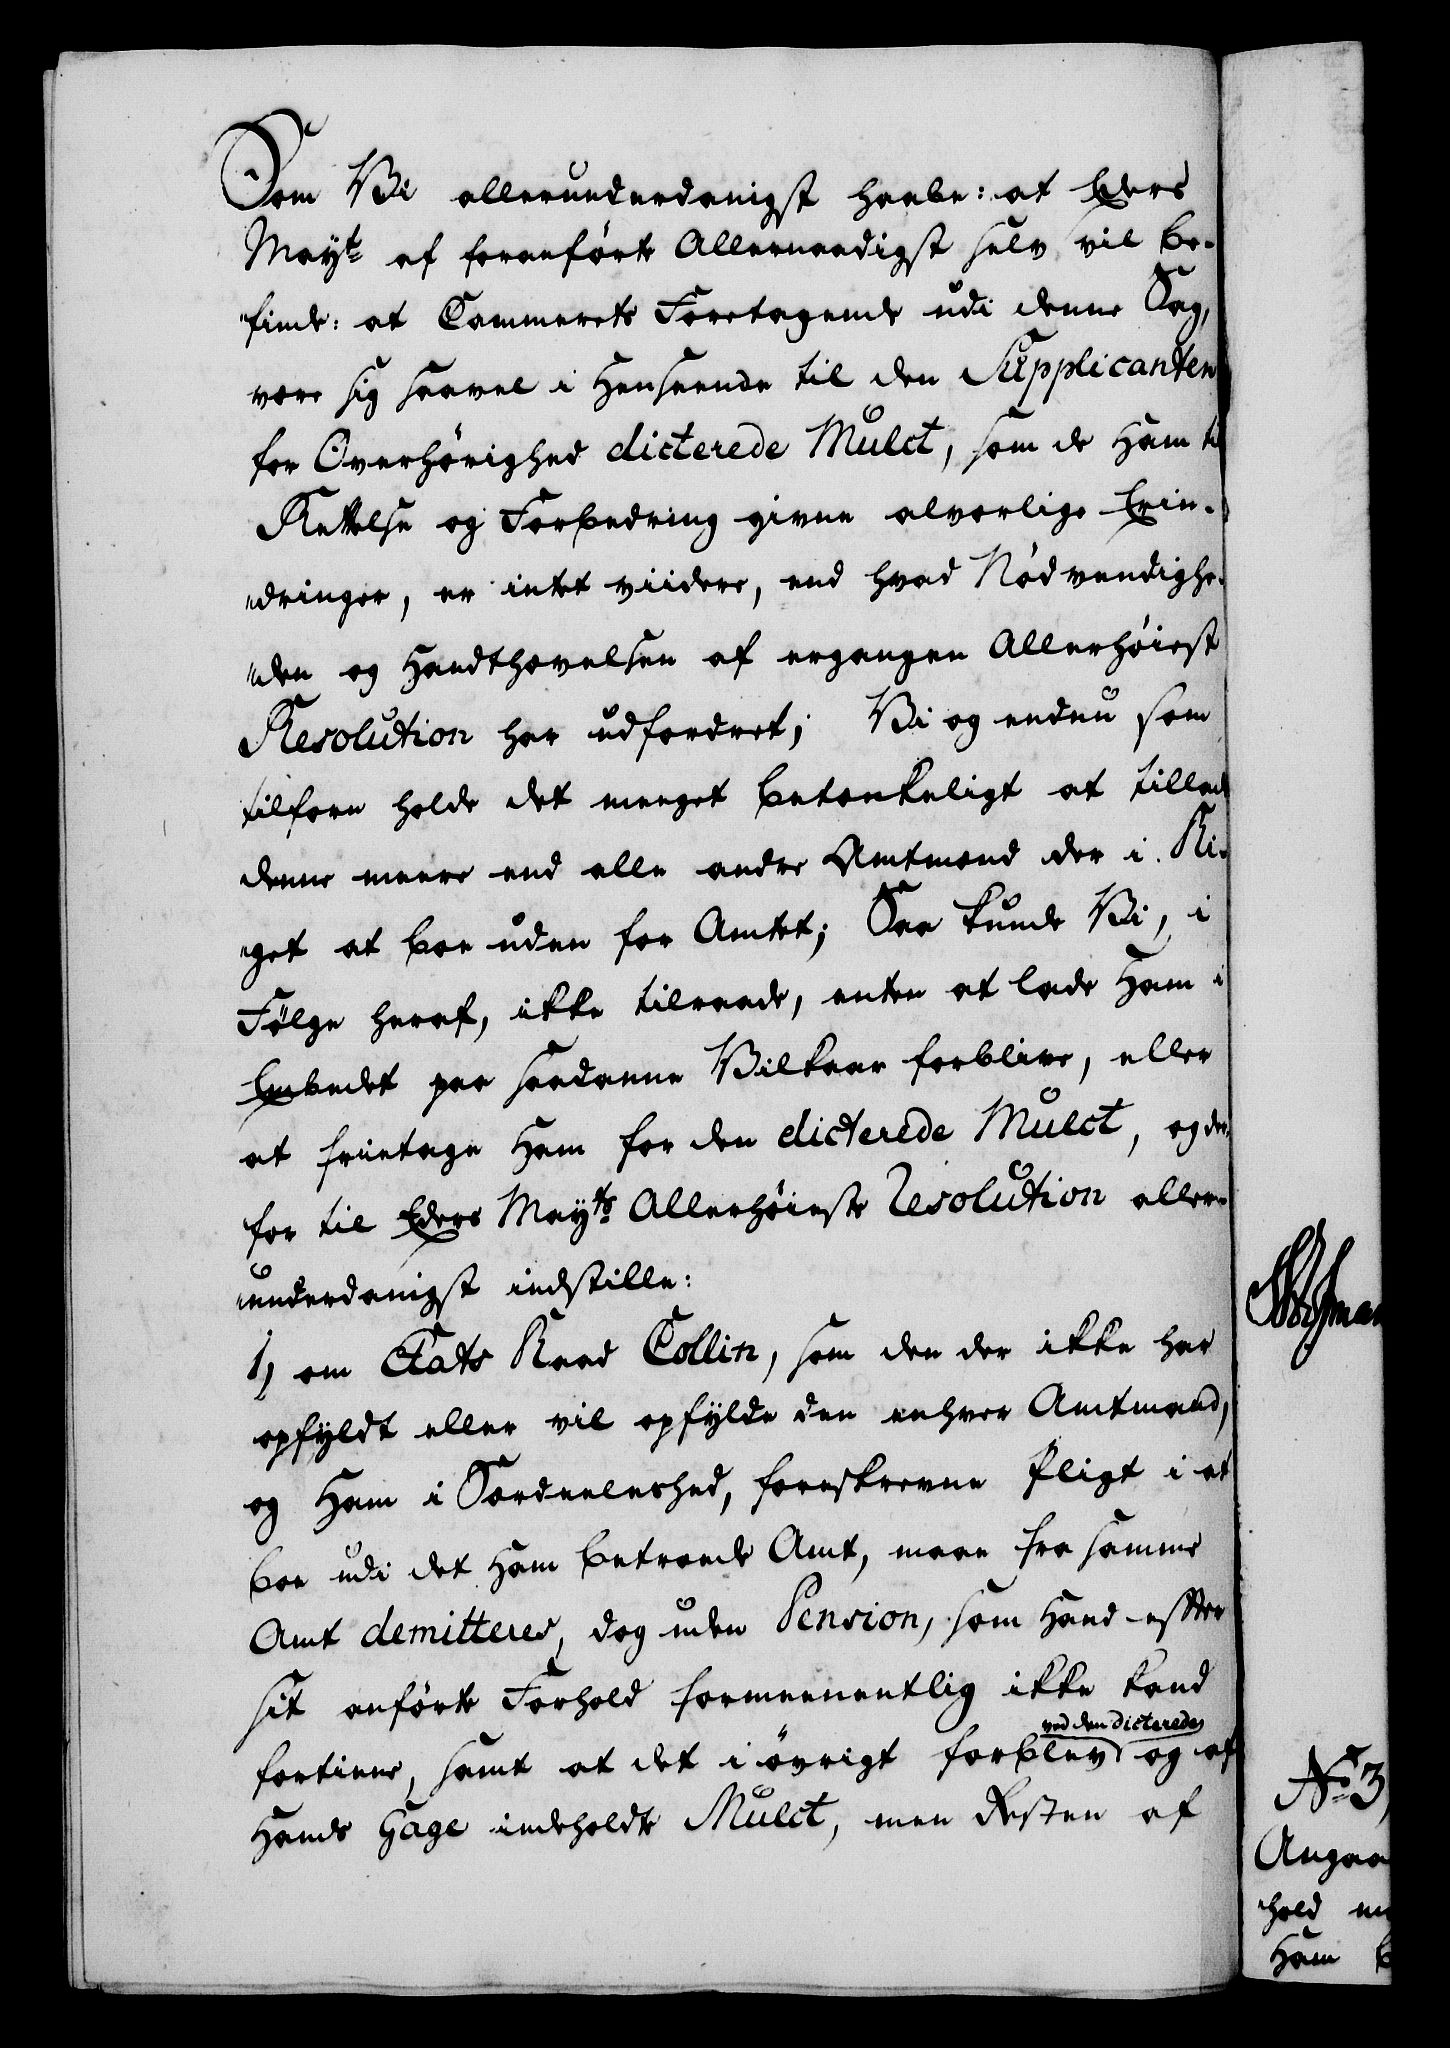 Som Vi allerunderdanigst haabe: at Eders
Mayt: af foranførte Allernaadigst selv vil be-
finde: at Cammerets Foretagende udi denne Sag,
være sig saavel i Henseende til den Supplicanten
for Overhørighed dicterede Mulct, som de Ham til
Rettelse og Forbedring givne alvorlige Erin-
dringer, er intet viidere, end hvad Nødvendighe-
den og Handthævelsen af ergangen Allerhøieste
Resolution har udfordret; Vi og endnu som
tilforn holde det meeget betænkeligt at tillade
denne meere end alle andre Amtmænd der i Ri-
get at boe uden for Amtet; Saa kunde Vi, i
Følge heraf, ikke tilraade, enten at lade Ham i
Embedet paa saadanne Vilkaar forblive, eller
at frietage Ham for den dicterede Mulct, og der-
for til Eders Mayts: Allerhøieste Resolution aller-
underdanigst indstille:
1) om Etats Raad Collin, som den der ikke har
opfyldt eller vil opfylde den enhver Amtmand,
og Ham i Særdeeleshed, foreskrevne Pligt i at
boe udi det Ham betroede Amt, maae fra samme
Amt demitteres, dog uden Pension, som Hand effter
sit anførte Forhold formeenentlig ikke kand
fortiene, samt at det i øvrigt forblev ved den dicterede og af
Hands Gage indeholdte Mulct, men Resten af
Wesman
No 3,
Angaa
hold
Ham